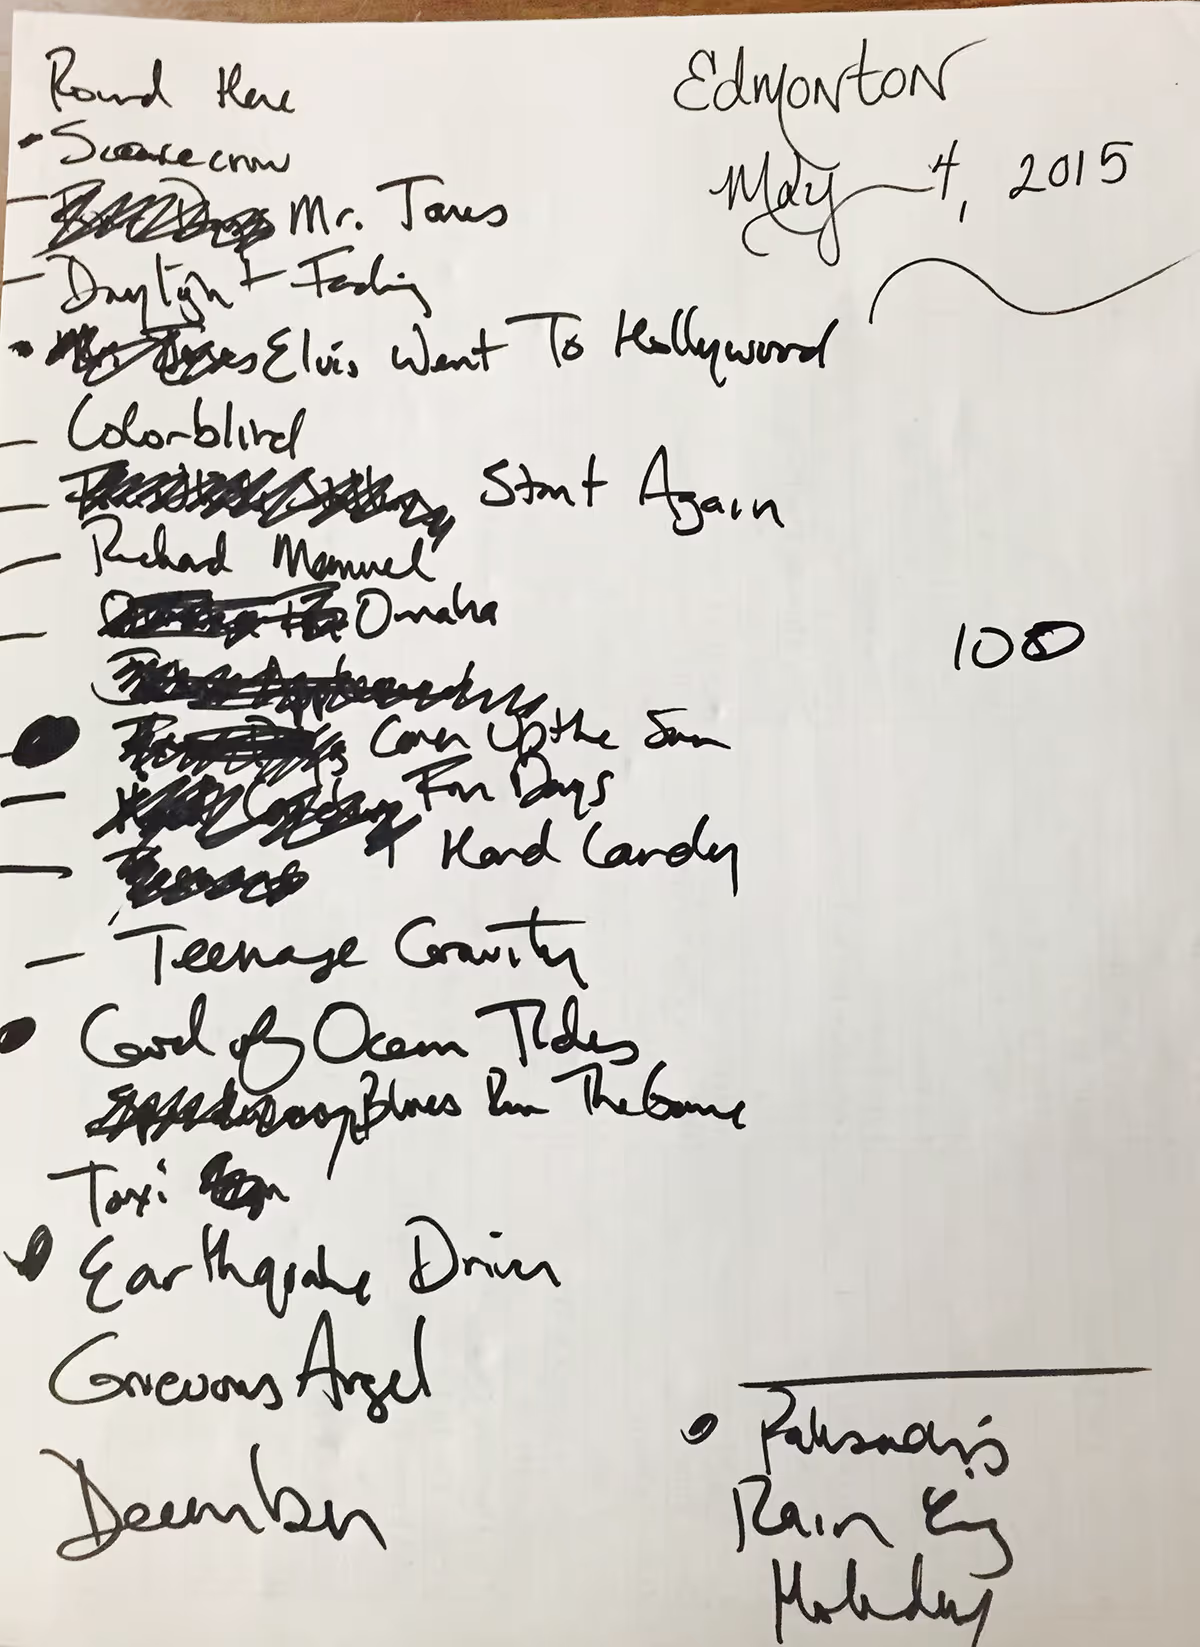 Round Here
Edmonton
Scarecrow
May 4, 2015
Mr. Jones
Daylight Fading
Elvis Went To Hollywood
Colorblind
Start Again
Richard Manuel
Omaha
100
Cover Up the Sun
Four Days
Hard Candy
Teenage Gravity
God of Ocean Tides
Blues Run The Game
Taxi
Earthquake Driver
Grievous Angel
December
Palisades
Rain King
Holiday